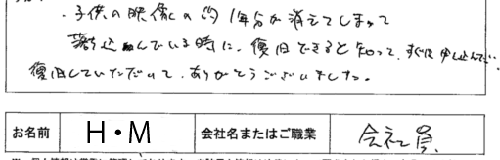 ・子供の映像の約1年分が消えてしまって
落ち込んでいる時に、復旧できると知って、すぐに申し込んで、
復旧していただいて、ありがとうございました。
お名前 H・M 会社名またはご職業 会社員